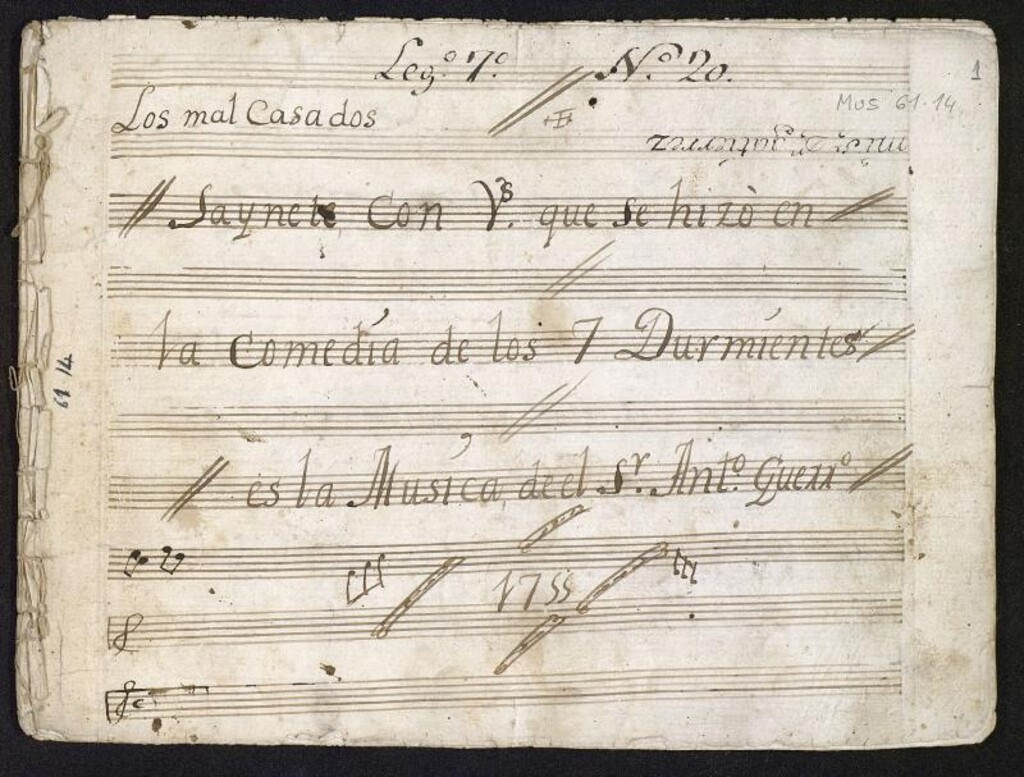 Leg.º 7.º N.º 20.
1
Los mal Casados
Mus 61-14
gutierrez
Saynete Con V.s que se hizò en
la Comedia de los 7 Durmientes
61 14
es la Musica, de el Sr. Ant.º Guerr.º
1755